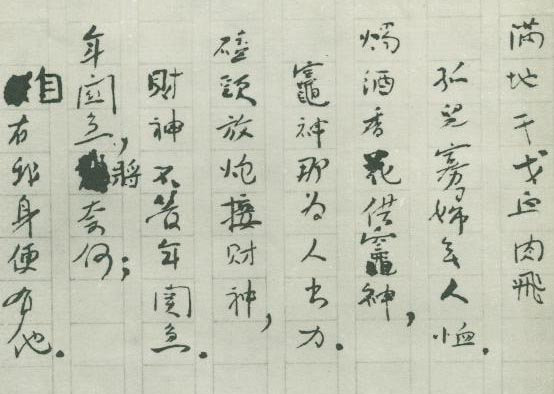 满地干戈血肉飛
孤兒寡婦无人恤.
燭酒香花供竈神,
竈神那为人出力.
磕頭放炮接財神,
財神不管年関急.
年関急,將奈何;
自有我身便有他.